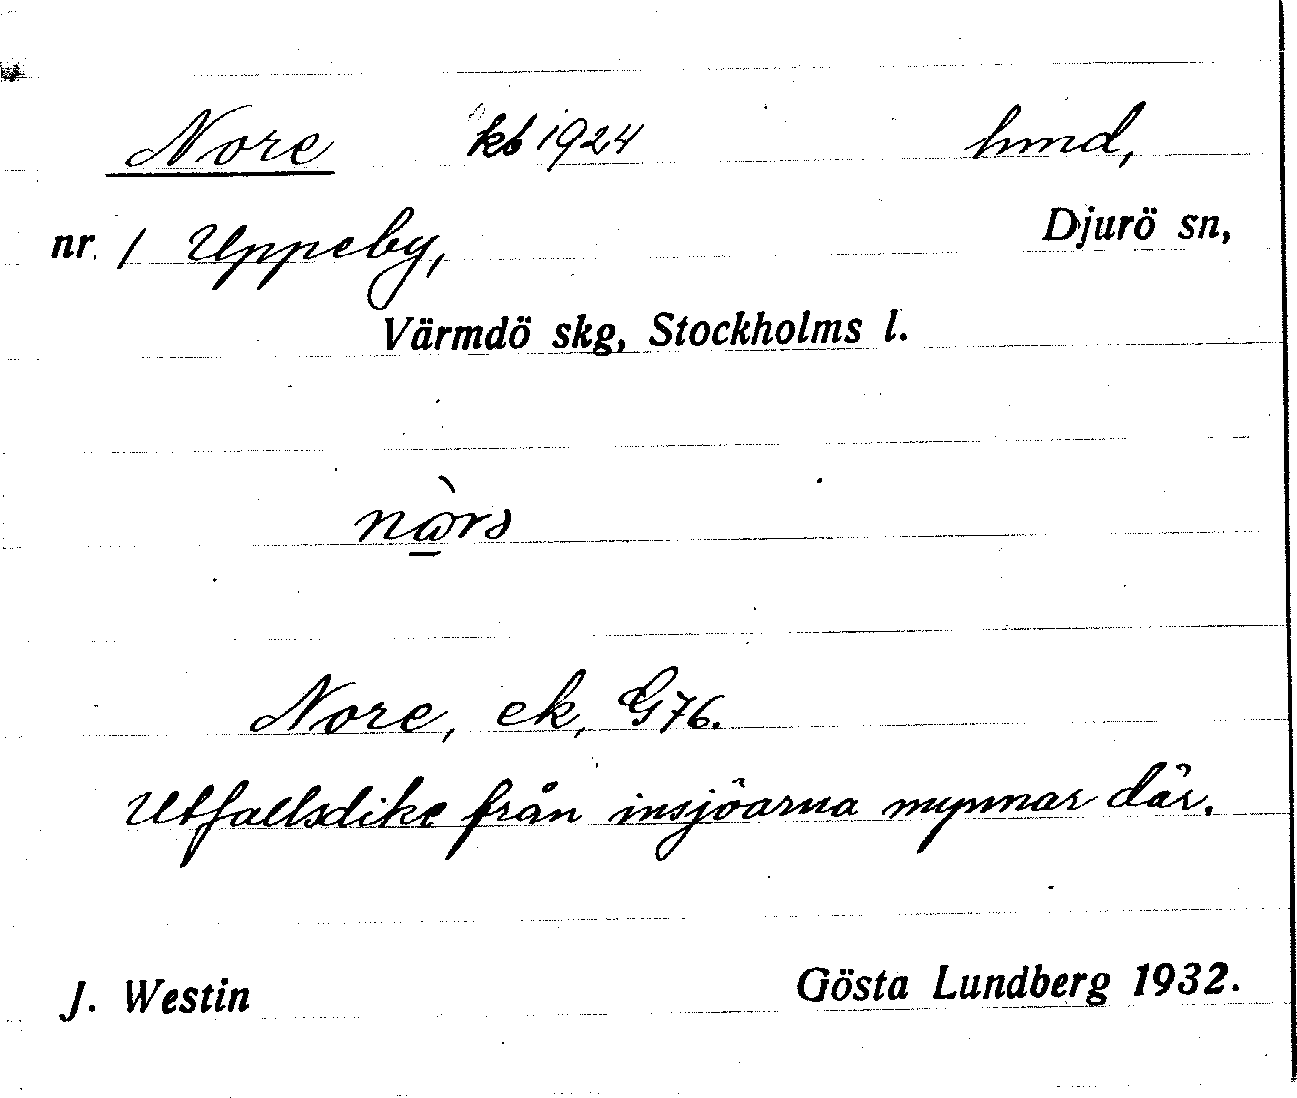 Nore kb 1924 hmd,
nr 1 Uppeby, Djurö sn,
Värmdö skg, Stockholms l.
Nore, ek, G76.
Utfallsdike från insjöarna mynnar där.
J. Westin Gösta Lundberg 1932.